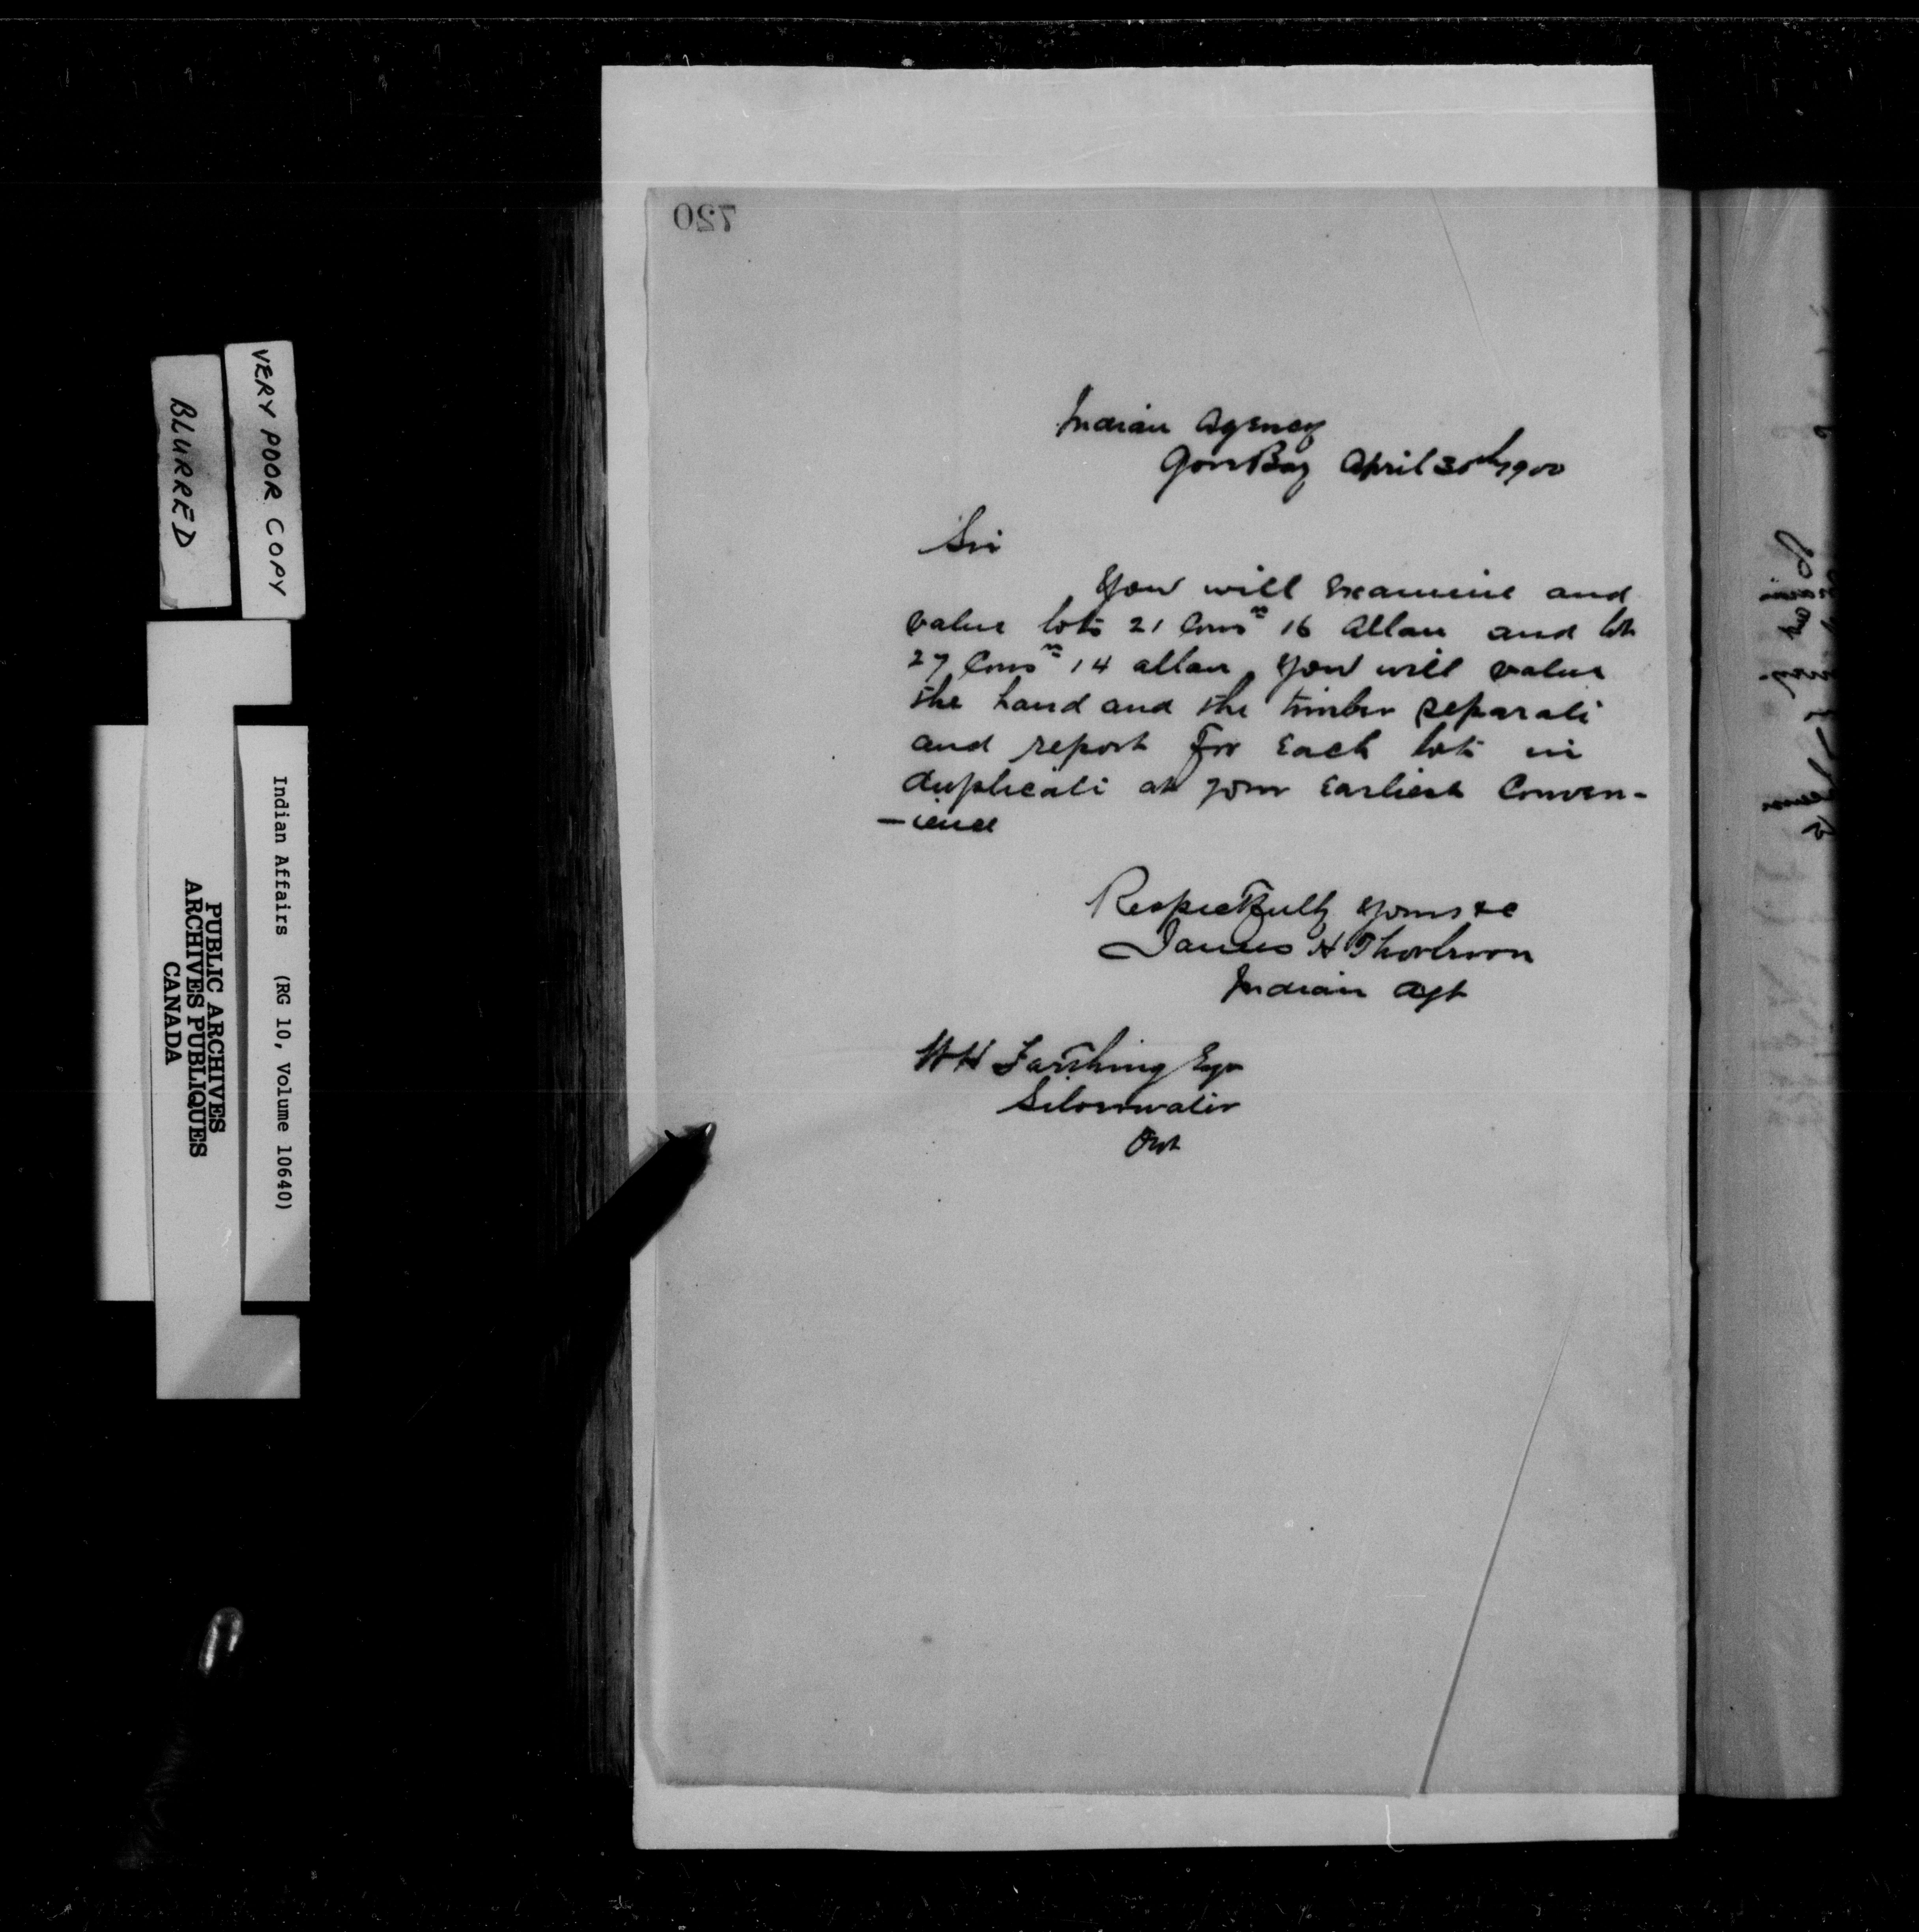 720
Indian Agency
Gore Bay April 30th 1900
Sir
You will Examine and
value lots 21 Conn 16 Allan and lot
27 Conn 14 allan you will value
the Land and the timber separate
and report For Each lots in
duplicate at your Earliest Conven-
-ience
Respectfully yours &c
James H Thorburn
Indian Agt
WH Farthing Esqr
Silverwater
Ont
VERY POOR COPY
BLURRED
Indian Affairs (RG 10, Volume 10640)
PUBLIC ARCHIVES
ARCHIVES PUBLIQUES
CANADA